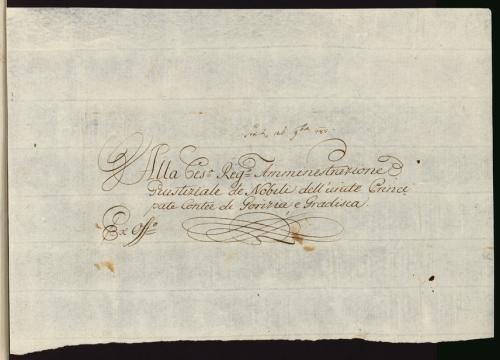 Alla Ces:ª Reg:ª Amminestrazione
Giustiziale de Nobili dell'unite Prince
pate Contee di Gorizia e Gradisca.
Ex Off:º